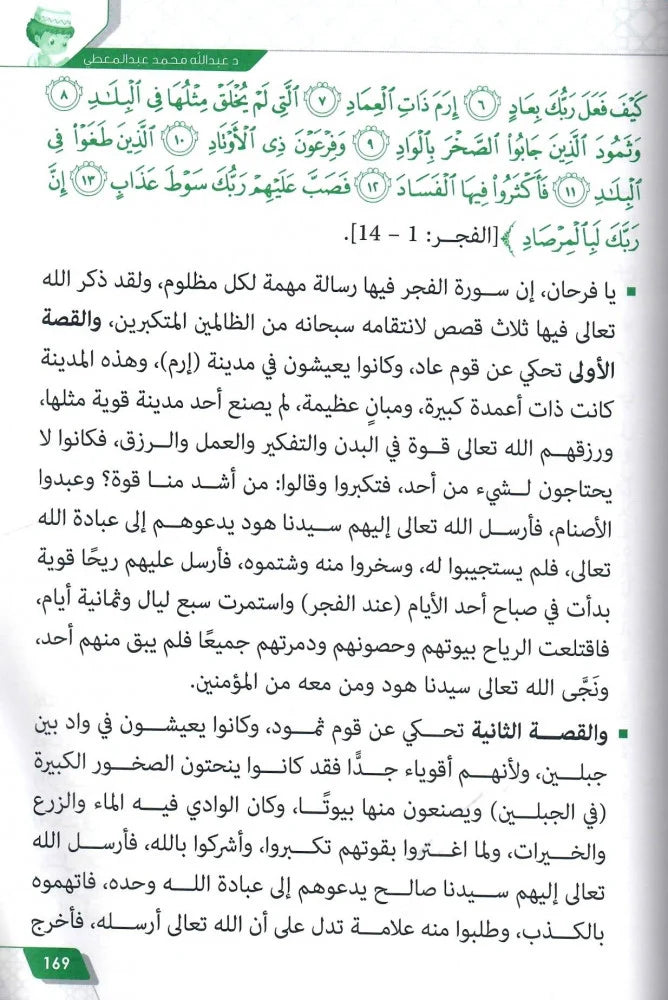 د عبدالله محمد عبدالمعطي
كَيْفَ فَعَلَ رَبُّكَ بِعَادٍ ٦ إِرَمَ ذَاتِ الْعِمَادِ ٧ الَّتِي لَمْ يُخْلَقْ مِثْلُهَا فِي الْبِلَادِ ٨
وَثَمُودَ الَّذِينَ جَابُوا الصَّخْرَ بِالْوَادِ ٩ وَفِرْعَوْنَ ذِي الْأَوْتَادِ ١٠ الَّذِينَ طَغَوْا فِي
الْبِلَادِ ١١ فَأَكْثَرُوا فِيهَا الْفَسَادَ ١٢ فَصَبَّ عَلَيْهِمْ رَبُّكَ سَوْطَ عَذَابٍ ١٣ إِنَّ
رَبَّكَ لَبِالْمِرْصَادِ ﴾ [الفجر: 1 – 14].
▪ يا فرحان، إن سورة الفجر فيها رسالة مهمة لكل مظلوم، ولقد ذكر الله
تعالى فيها ثلاث قصص لانتقامه سبحانه من الظالمين المتكبرين، والقصة
الأولى تحكي عن قوم عاد، وكانوا يعيشون في مدينة (إرم)، وهذه المدينة
كانت ذات أعمدة كبيرة، ومبانٍ عظيمة، لم يصنع أحد مدينة قوية مثلها،
ورزقهم الله تعالى قوة في البدن والتفكير والعمل والرزق، فكانوا لا
يحتاجون لشيء من أحد، فتكبروا وقالوا: من أشد منا قوة؟ وعبدوا
الأصنام، فأرسل الله تعالى إليهم سيدنا هود يدعوهم إلى عبادة الله
تعالى، فلم يستجيبوا له، وسخروا منه وشتموه، فأرسل عليهم ريحًا قوية
بدأت في صباح أحد الأيام (عند الفجر) واستمرت سبع ليال وثمانية أيام،
فاقتلعت الرياح بيوتهم وحصونهم ودمرتهم جميعًا فلم يبق منهم أحد،
ونَجَّى الله تعالى سيدنا هود ومن معه من المؤمنين.
▪ والقصة الثانية تحكي عن قوم ثمود، وكانوا يعيشون في واد بين
جبلين، ولأنهم أقوياء جدًّا فقد كانوا ينحتون الصخور الكبيرة
(في الجبلين) ويصنعون منها بيوتًا، وكان الوادي فيه الماء والزرع
والخيرات، ولما اغتروا بقوتهم تكبروا، وأشركوا بالله، فأرسل الله
تعالى إليهم سيدنا صالح يدعوهم إلى عبادة الله وحده، فاتهموه
بالكذب، وطلبوا منه علامة تدل على أن الله تعالى أرسله، فأخرج
169